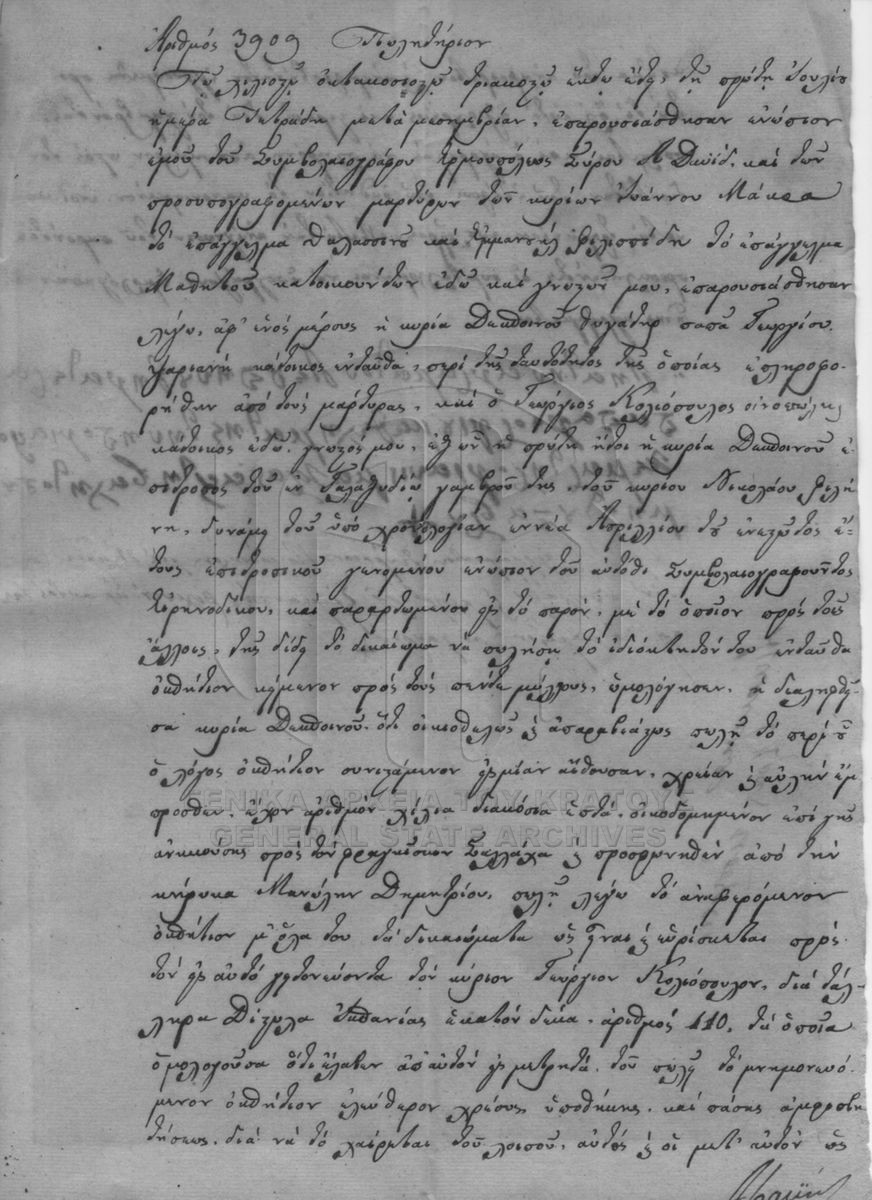 Ἀριθμός 3909 Πωλητήριον
Τῷ χιλιοςῷ ὀκτακοσιοςῷ τριακοςῷ ἕκτῳ ἔτει τῇ πρώτῃ Ἰουλίου
ἡμέρᾳ Τετράδῃ μετὰ μεσημβρίαν, ἐπαρουσιάσθησαν ἐνώπιον
ἐμοῦ τοῦ Συμβολαιογράφου Ἑρμουπόλεως Σύρου Α Δαυίδ, καὶ τῶν
προσυπογραφομένων μαρτύρων τῶν κυρίων Ἰωάννου Μάκρα
τὸ ἐπάγγελμα θαλασσινοῦ καὶ Ἐμμανουὴλ Φιλιππίδη τὸ ἐπάγγελμα
Μαθητοῦ κατοικούντων ἐδῶ καὶ γνωςῶν μου, ἐπαρουσιάσθησαν
λέγω, ἀφ' ἑνὸς μέρους ἡ κυρία Δεσποινοῦ θυγάτηρ παπᾶ Γεωργίου
ψαριανὴ κάτοικος ἐνταῦθα, περὶ τῆς ταυτότητος τῆς ὁποίας ἐπληροφο-
ρήθην ἀπὸ τοὺς μάρτυρας, καὶ ὁ Γεώργιος Κολιόπουλος οἰνοπώλης
κάτοικος ἐδῶ, γνωςός μου, ἐξ ὧν ἡ πρώτη ἤτοι ἡ κυρία Δεσποινοῦ ἐ-
πίτροπος τοῦ ἐν Γαλαξειδίῳ γαμβροῦ της, τοῦ κυρίου Νικολάου
δυνάμει τοῦ ὑπὸ χρονολογίαν ἐννέα Ἀπριλλίου τοῦ ἐνεςῶτος ἔ-
τους ἐπιτροπικοῦ γενομένου ἐνώπιον τοῦ αὐτόθι Συμβολαιογραφοῦντος
Εἰρηνοδίκου, καὶ παραρτωμένου εἰς τὸ παρόν, μὲ τὸ ὁποῖον πρὸς τοῖς
ἄλλοις, τῆς δίδει τὸ δικαίωμα νὰ πωλήσῃ τὸ ἰδιόκτητόν του ἐνταῦθα
ὀσπήτιον κείμενον πρὸς τοὺς πέντε μύλους, ὡμολόγησεν, ἡ διαληφθεῖ-
σα κυρία Δεσποινοῦ, ὅτι οἰκειοθελῶς καὶ ἀπαραβιάςως πωλεῖ τὸ περὶ οὗ
ὁ λόγος ὀσπήτιον συνιςάμενον εἰς μίαν αἴθουσαν, χρείαν καὶ αὐλὴν ἔμ-
προσθεν, ἔχον ἀριθμὸν χίλια διακόσια ἑπτά, οἰκοδομημένον ἐπὶ γῆς
ἀνηκούσης πρὸς τὸν φραγκίσκον Σαλλάχα καὶ προσφωνηθὲν ἀπὸ τὴν
κήρυκα Μανώλην Δημητρίου, πωλεῖ λέγω τὸ ἀναφερόμενον
ὀσπήτιον μ' ὅλα του τὰ δικαιώματα ὡς εἶναι καὶ εὑρίσκεται πρὸς
τὸν εἰς αὐτὸ γειτονεύοντα τὸν κύριον Γεώργιον Κολιόπουλον, διὰ τάλ-
ληρα Δίςηλα Ἱσπανίας ἑκατὸν δέκα, ἀριθμός 110, τὰ ὁποῖα
ὁμολογοῦσα ὅτι ἔλαβεν ἀπ' αὐτὸν εἰς μετρητά, τοῦ πωλεῖ τὸ μνημονευό-
μενον ὀσπήτιον ἐλεύθερον χρέους, ὑποθήκης, καὶ πάσης ἀμφισβη-
τήσεως, διὰ νὰ τὸ χαίρεται τοῦ λοιποῦ, αὐτὸς καὶ οἱ μετ' αὐτὸν ὡς
ΓΕΝΙΚΑ ΑΡΧΕΙΑ ΤΟΥ ΚΡΑΤΟΥΣ
GENERAL STATE ARCHIVES